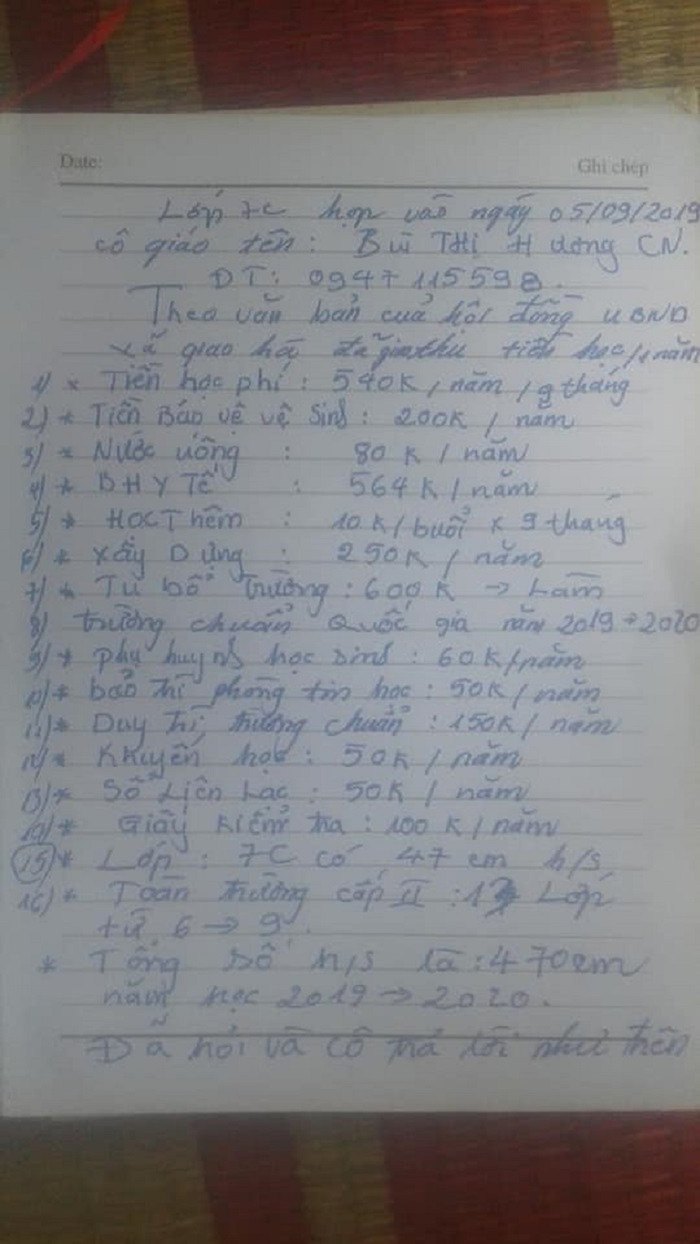 Date: Ghi chép
Lớp 7C họp vào ngày 05/09/2019
cô giáo tên: Bùi THị Hương CN.
ĐT: 0947115598.
Theo văn bản của hội đồng UBND
xã giao hà thu tiền học/1 năm
1) * Tiền học phí: 540K/năm/9 tháng
2) * Tiền Bảo vệ vệ Sinh: 200K / năm
3) * Nước uống : 80 K / năm
4) * BHY Tế : 564 K / năm
5) * Học Thêm : 10 K/buổi x 9 tháng
6) * Xây Dựng : 250K / năm
7) * Tu bổ Trường: 600 K -> Làm
8) trường chuẩn Quốc gia năm 2019 -> 2020
9) * phụ huynh học sinh: 60K/năm
10) * bảo trì phòng tin học: 50K / năm
11) * Duy Trì trường chuẩn: 150K / năm
12) * Khuyến học: 50K / năm
13) * Sổ Liên Lạc: 50K / năm
14) * Giấy Kiểm tra: 100 K / năm
15) * Lớp: 7C có 47 em h/s
16) * Toàn trường cấp II: Lớp
từ 6 -> 9.
* Tổng số h/s là: 470 em
năm học 2019 -> 2020.
Đã hỏi và cô trả lời như trên